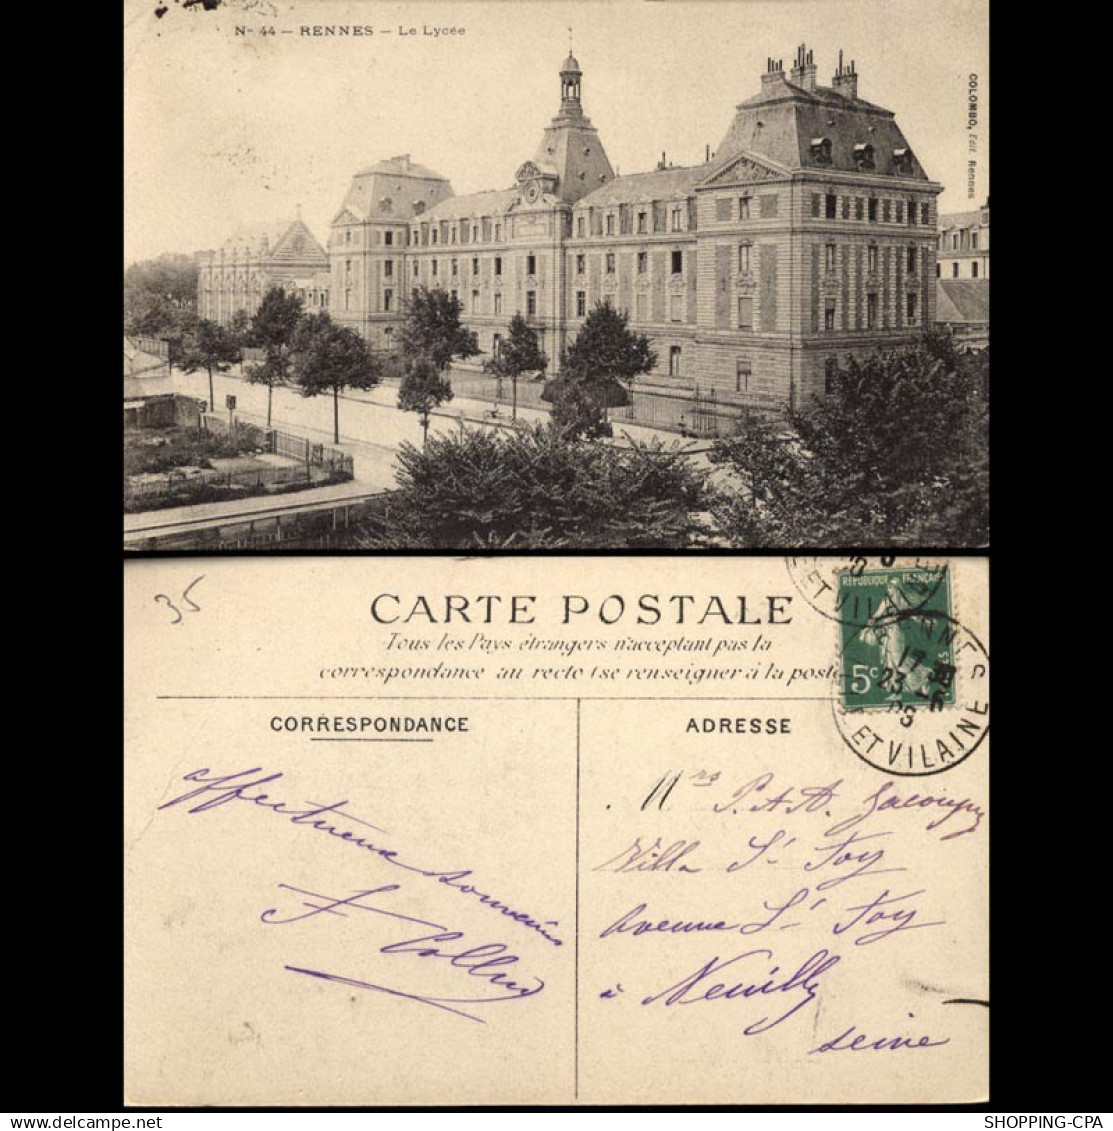 N- 44 — RENNES — Le Lycée
COLOMBO, Edit. Rennes
35
CARTE POSTALE
Tous les Pays étrangers n'acceptant pas la
correspondance au recto (se renseigner à la poste
REPUBLIQUE FRANÇAISE
5c
ET VILAINE
RENNES
17 30
23 - 6
ET VILAINE
CORRESPONDANCE
ADRESSE
affectueux souvenirs
F Collin
Mrs P. & A.
Villa St Foy
Avenue St Foy
à Neuilly
seine
SHOPPING-CPA